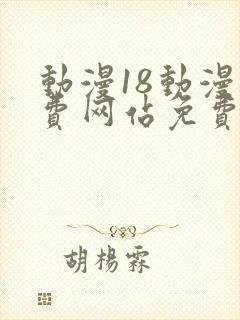 動漫18動漫
費网佔免費
胡楊霖